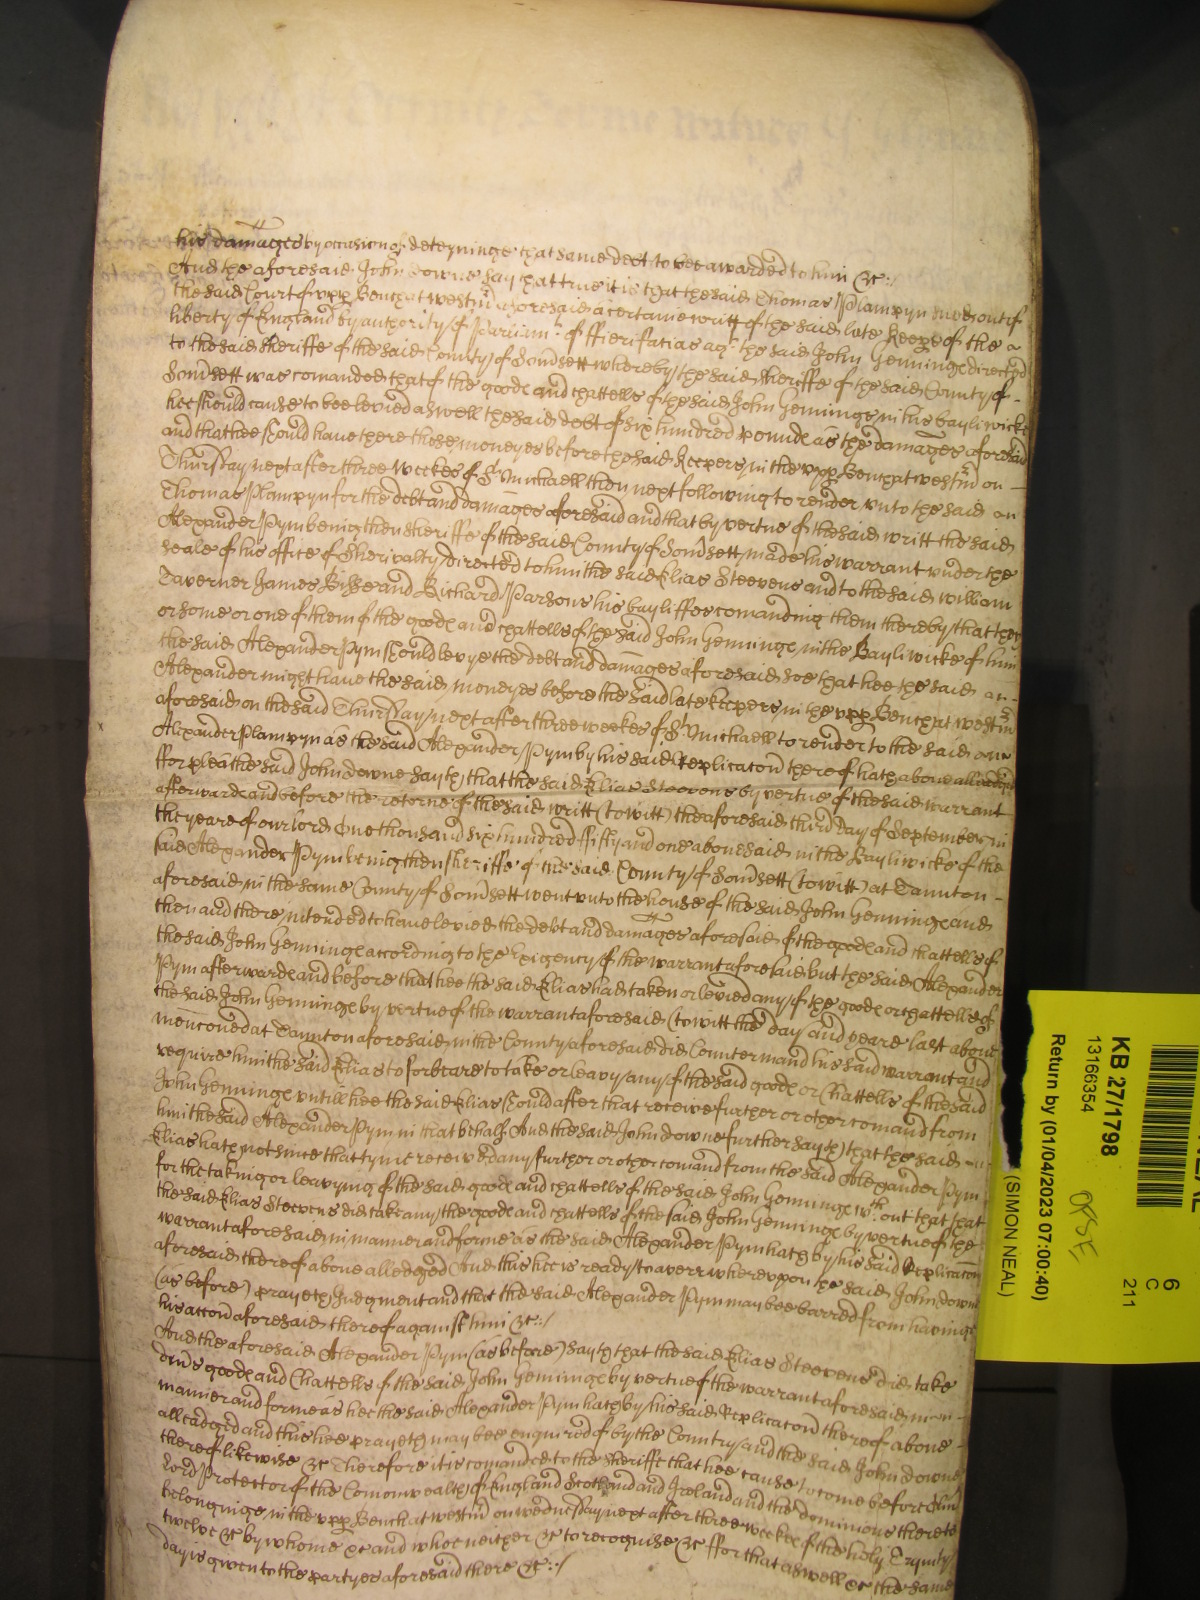 his damages by occasion of deteyninge that same debt to bee awarded to him &c:/
And the aforesaid John Downe say that true it is that the said Thomas Plampyn sued out of
the said Court of vpp Bench at westm aforesaid a certaine writt of the said late Keeps of the
liberty of England by authority of Parliamt of ffieri facias agt the said John Genninge directed
to the said Sheriffe of the said County of Somsett whereby the said Sheriffe of the said County of
Somsett was comanded that of the goode and chattells of the said John Genninge in his bayliwicke
hee should cause to bee levied aswell the said debt of six hundred pounde as the damages aforesaid
and that hee should have there those moneyes before the said Keepers in the vpp Bench at westm on
Thursday next after three weekes of St Michaell then next following to render vnto the said
Thomas Plampyn for the debt and damages aforesaid and that by vertue of the said writt the said
Alexander Pym benig then sheriffe of the said County of Somsett made his warrant vnder the
seale of his office of Sherivalty directed to him the said Elias Steevens and to the said William
Taverner James Bisse and Richard Parsons his bayliffes comanding them thereby that they
or some or one of them of the goode and chattells of the said John Genninge in the Bayliwicke of him
the said Alexander Pym should levye the debt and damages aforesaid soe that hee the said
Alexander might have the said moneyes before the said late keepers in the vpp Bench at westm
aforesaid on the said Thursday next after three weekes of St Michaell to render to the said
Alexander Plampyn as the said Alexander Pym by his said Replicacon thereof hath above alleadged
ffor plea the said John Downe sayth that the said Elias Steevens by vertue of the said warrant
afterwarde and before the retorne of the said writt (to witt) the aforesaid third day of September in
the yeare of our lord One thousand six hundred fifty and one abovesaid in the Bayliwicke of the
said Alexander Pym benig then sheriffe of the said County of Somsett (to witt) at Taunton
aforesaid in the same County of Somsett went vnto the house of the said John Genninge and
then and there intended to have levied the debt and damages aforesaid of the goode and chattells of
the said John Genninge according to the Exigency of the warrant aforesaid but the said Alexander
Pym afterwarde and before that hee the said Elias had taken or levied any of the goode or chattells of
the said John Genninge by vertue of the warrant aforesaid (to witt the day and yeare last above
menconed at Taunton aforesaid in the County aforesaid did Countermand his said warrant and
require him the said Elias to forbeare to take or leavy any of the said goode or Chattells of the said
John Genninge vntill hee the said Elias should after that receive further or other comand from
him the said Alexander Pym in that behalf And the said John Downe further sayth that the said
Elias hath not since that tyme received any further or other comand from the said Alexander Pym
for the taking or leavying of the said goode and chattells of the said John Genninge wth out that that
the said Elias Steevens did take any the goode and chattells of the said John Genninge by vertue of the
warrant aforesaid in manner and forme as the said Alexander Pym hath by his said Replicacon
aforesaid thereof above alledged And this hee is ready to averr wherevpon the said John Downe
(as before) prayeth Judgment and that the said Alexander Pym may bee barred from havinge
his accon aforesaid thereof against him &c:/
And the aforesaid Alexander Pym (as before) sayth that the said Elias Steevens did take
divs goode and Chattells of the said John Genninge by vertue of the warrant aforesaid in
manner and forme as hee the said Alexander Pym hath by his said Replicacon thereof above
alleadged and this hee prayeth may bee enquired of by the Country and the said John Downe
thereof likewise &c Therefore it is comanded to the Sheriffe that hee cause to come before
lord Protector of the Comonwealth of England Scotland and Ireland and the dominions thereto
belonginge in the vpp Bench at westm on wednesday next after three weekes of the holy Trynity
twelve &c by whome &c and whoe neither &c to recognise &c ffor that aswell &c the same
day is given to the partyes aforesaid there &c:/
KB 27/1798
13166354
Return by (01/04/2023 07:00:40)
(SIMON NEAL)
6
C
211